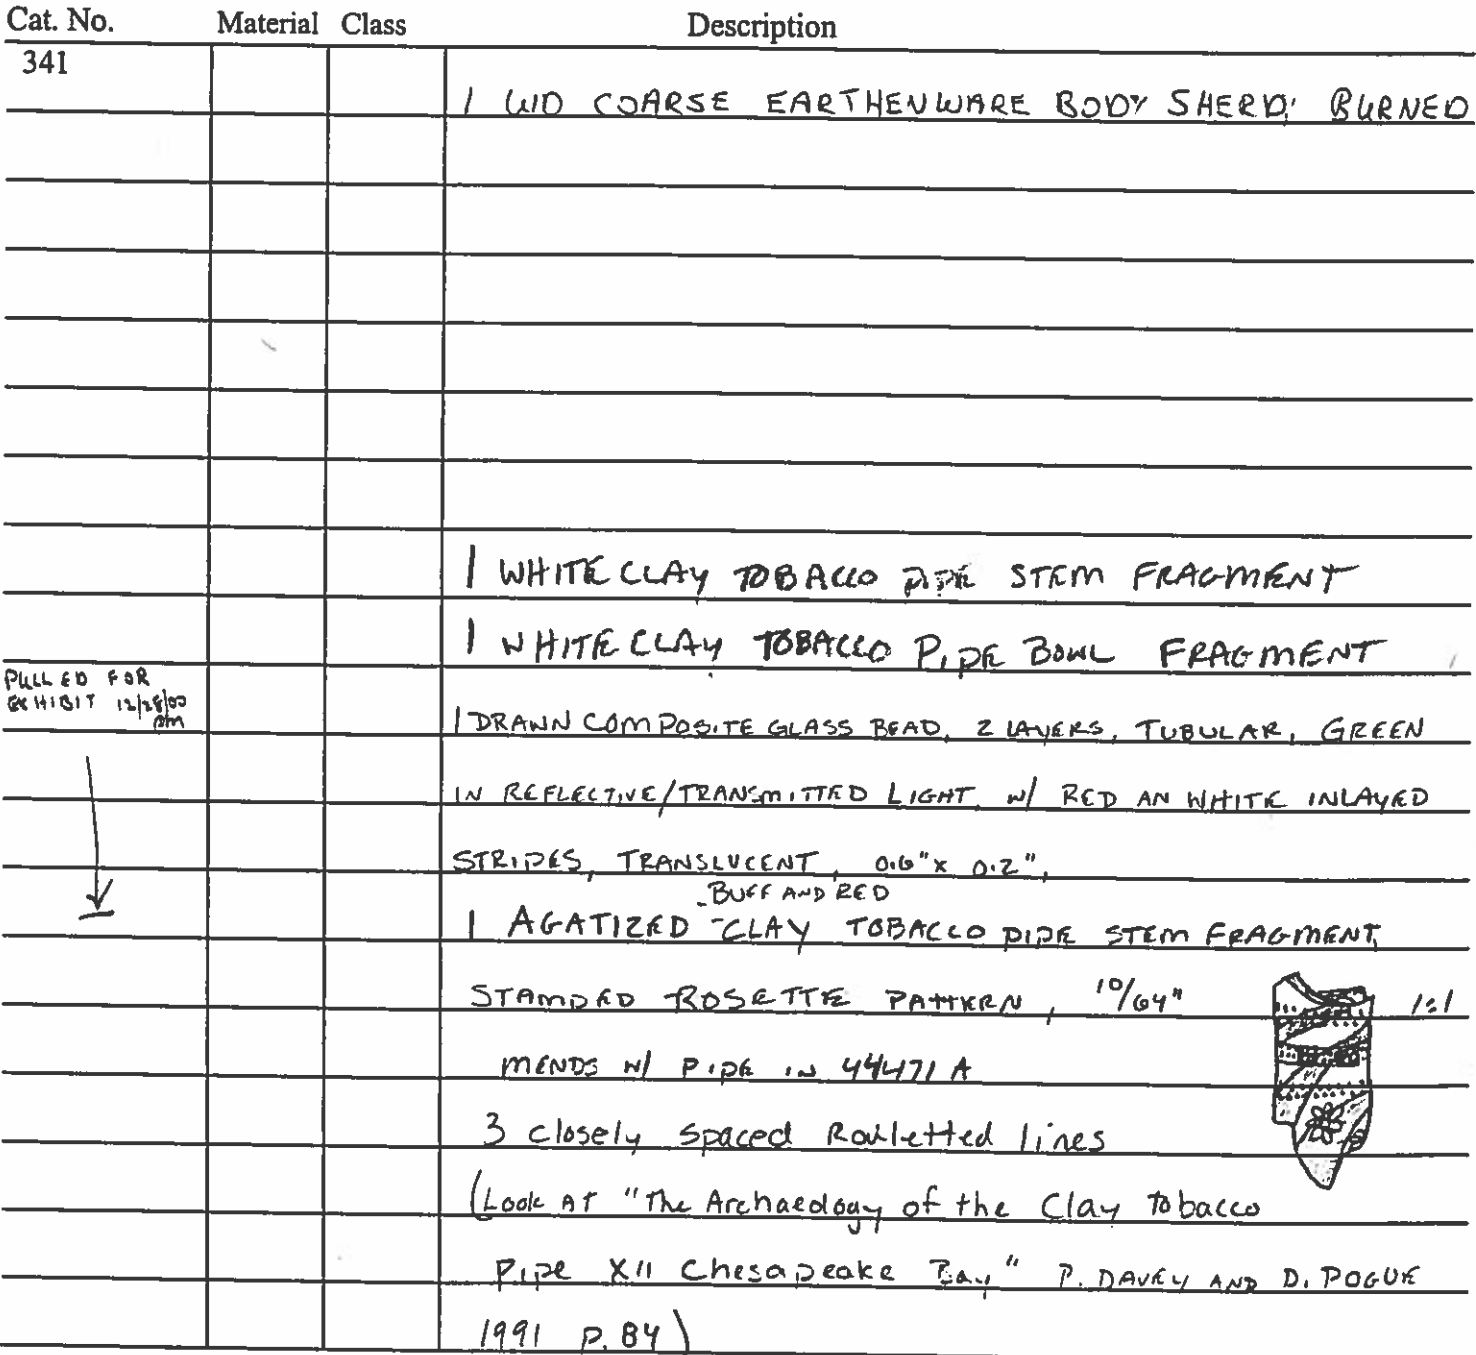 Cat. No. Material Class Description
341
1 UID COARSE EARTHENWARE BODY SHERD; BURNED
1 WHITE CLAY TOBACCO PIPE STEM FRAGMENT
1 WHITE CLAY TOBACCO PIPE BOWL FRAGMENT
PULLED FOR
EXHIBIT 12/28/00
1 DRAWN COMPOSITE GLASS BEAD, 2 LAYERS, TUBULAR, GREEN
IN REFLECTIVE/TRANSMITTED LIGHT, W/ RED AN WHITE INLAYED
STRIPES, TRANSLUCENT, 0.6" x 0.2",
BUFF AND RED
1 AGATIZED CLAY TOBACCO PIPE STEM FRAGMENT,
STAMPED ROSETTE PATTERN, 10/64" 1:1
MENDS W/ PIPE IN 44471 A
3 closely spaced Rouletted lines
(Look AT "The Archaeology of the Clay Tobacco
Pipe XII Chesapeake Bay" P. DAVEY AND D. POGUE
1991 P. 84)